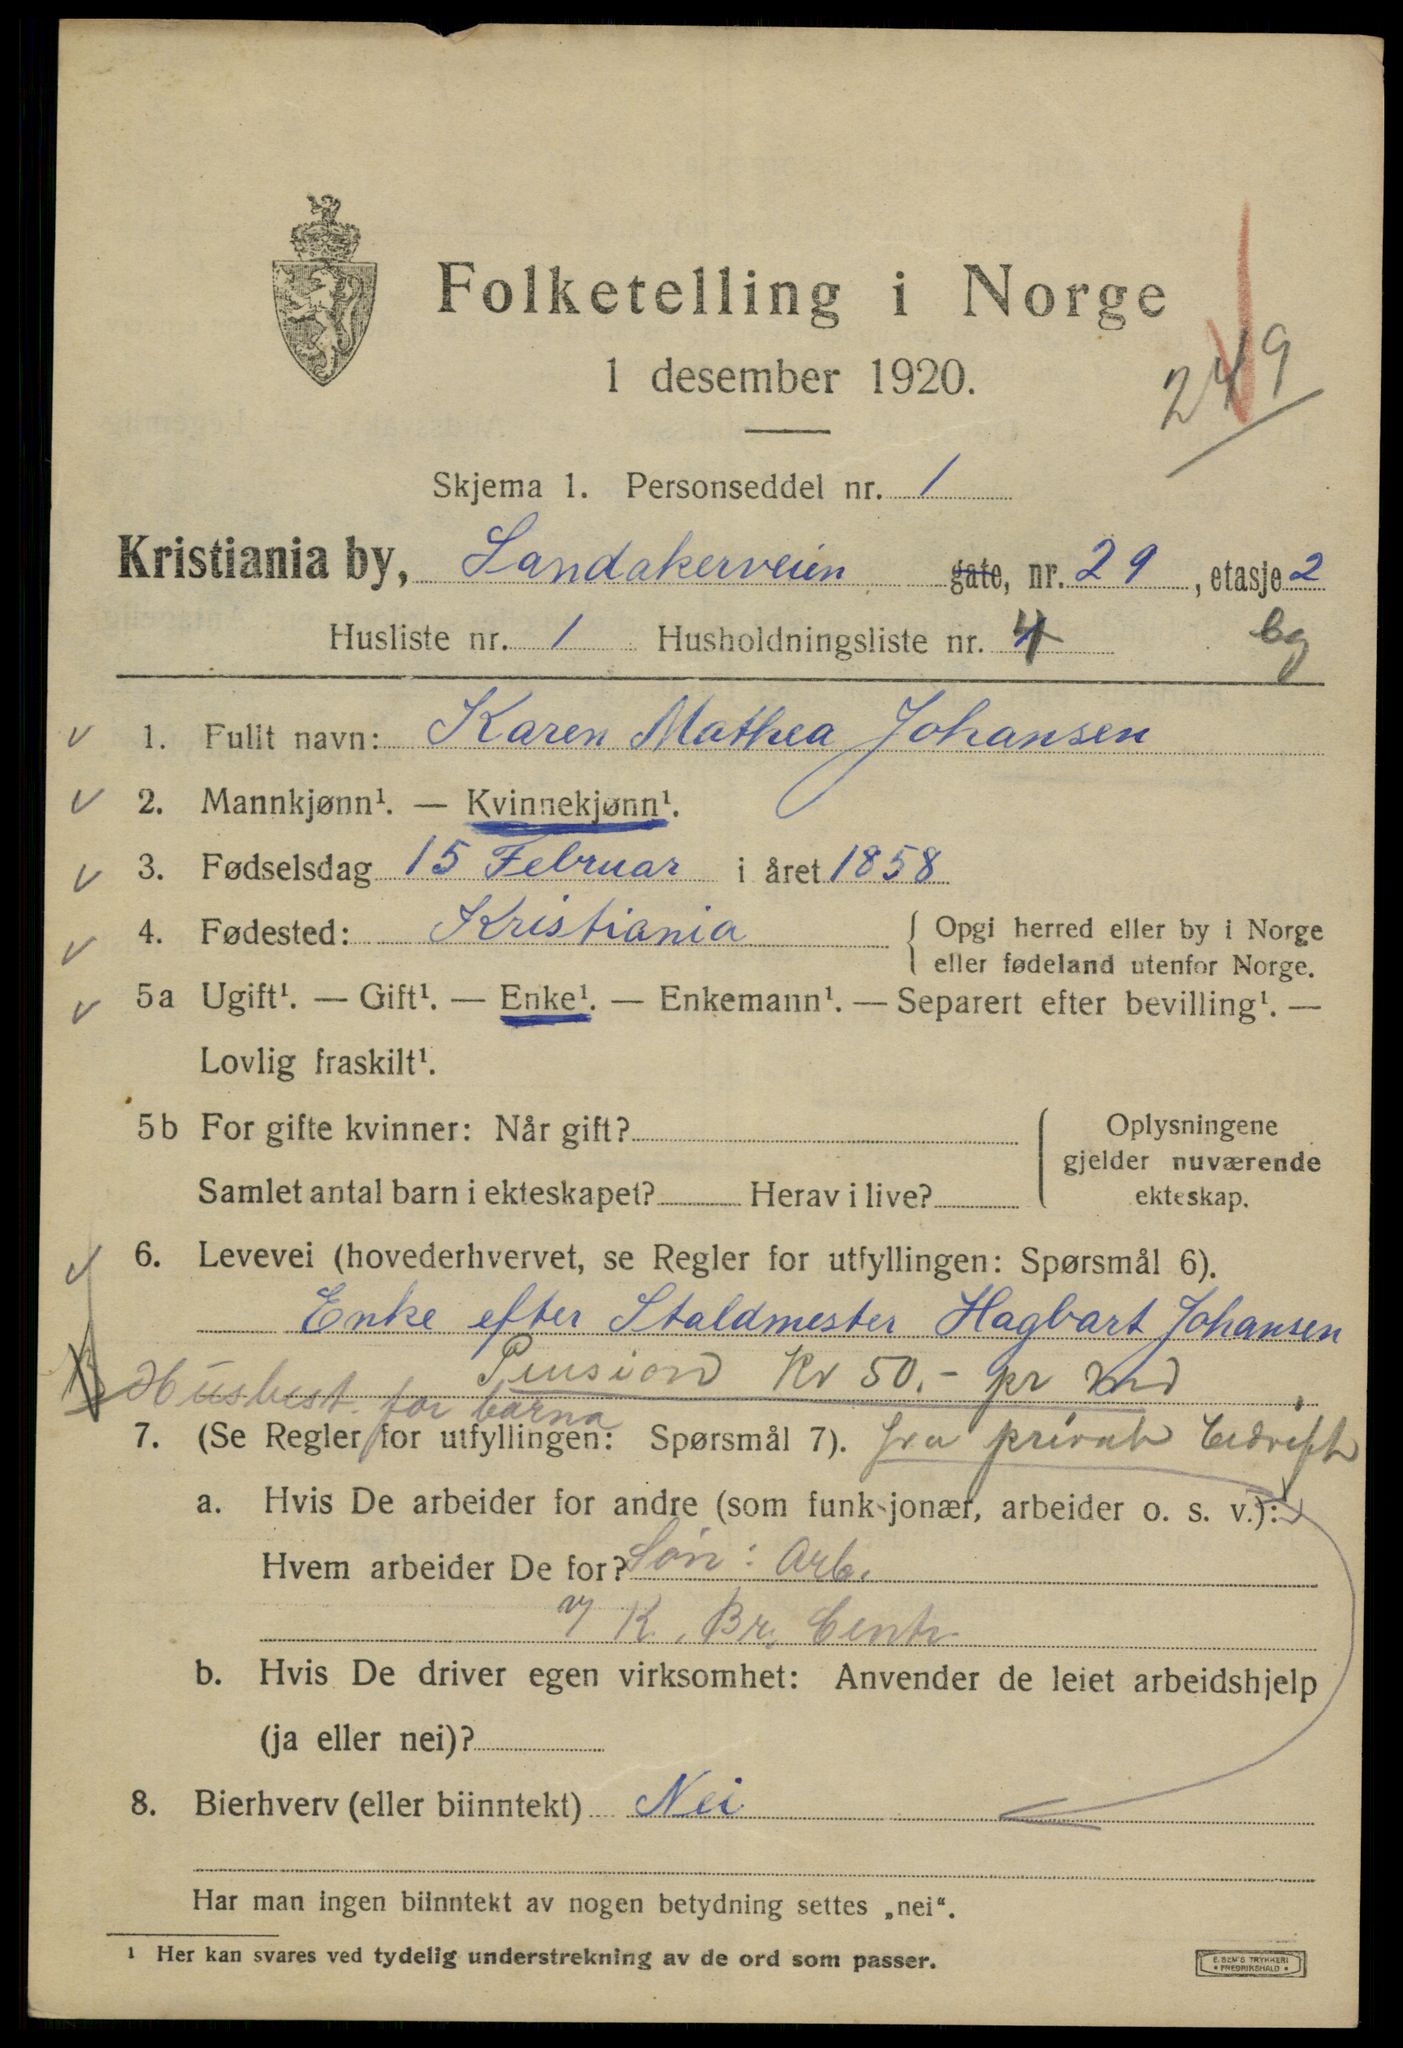 Folketelling i Norge
1 desember 1920.
249
Skjema 1. Personseddel nr. 1
Kristiania by, Sandakerveien gate, nr. 29, etasje 2
Husliste nr. 1 Husholdningsliste nr. 4 bg
1. Fullt navn: Karen Mathea Johansen
2. Mannkjønn¹. — Kvinnekjønn¹.
3. Fødselsdag 15 Februar i året 1858
4. Fødested: Kristiania { Opgi herred eller by i Norge
eller fødeland utenfor Norge.
5a Ugift¹. — Gift¹. — Enke¹. — Enkemann¹. — Separert efter bevilling¹. —
Lovlig fraskilt¹.
5b For gifte kvinner: Når gift? { Oplysningene
gjelder nuværende
Samlet antal barn i ekteskapet? Herav i live? ekteskap.
6. Levevei (hovederhvervet, se Regler for utfyllingen: Spørsmål 6).
Enke efter Staldmester Hagbart Johansen
Pension Kr 50.- pr md
Husbest. for barna
7. (Se Regler for utfyllingen: Spørsmål 7). fra privat bedrift
a. Hvis De arbeider for andre (som funksjonær, arbeider o. s. v.):
Hvem arbeider De for? Søn: Arb.
v/ K. Br. Centr.
b. Hvis De driver egen virksomhet: Anvender de leiet arbeidshjelp
(ja eller nei)?
8. Bierhverv (eller biinntekt) Nei
Har man ingen biinntekt av nogen betydning settes „nei“.
¹ Her kan svares ved tydelig understrekning av de ord som passer.
E. SEM'S TRYKKERI
• FREDRIKSHALD •